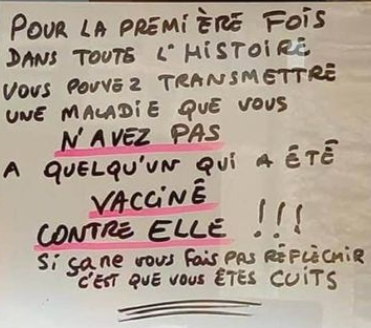 POUR LA PREMIÈRE FOIS
DANS TOUTE L'HISTOIRE
VOUS POUVEZ TRANSMETTRE
UNE MALADIE QUE VOUS
N'AVEZ PAS
A QUELQU'UN QUI A ÉTÉ
VACCINÉ
CONTRE ELLE !!!
Si ça ne vous fais PAS RÉFLÈCHIR
C'EST QUE VOUS ÊTES CUITS